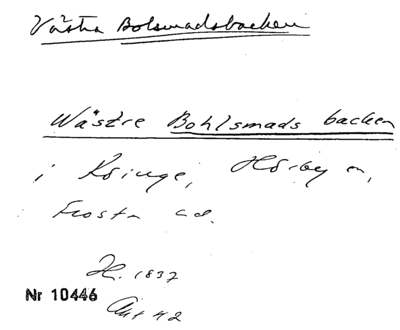 Västra Bolsmadsbacken
Wästre Bohlsmads backen
i Kringe, Hörby sn,
Frosta hd.
H. 1837
Nr 10446
Akt 42